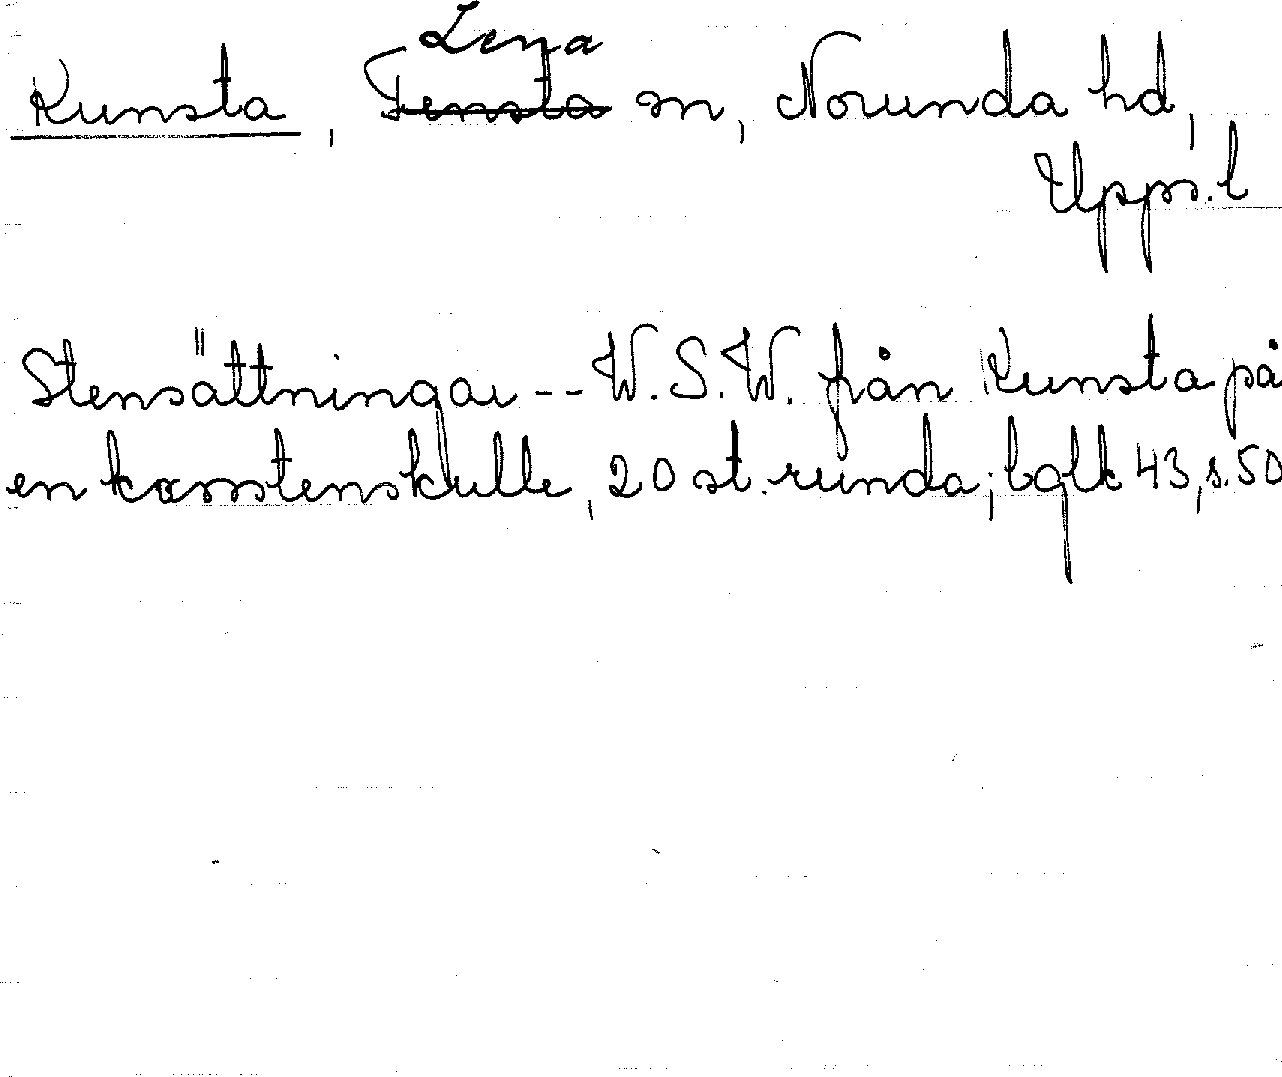 Lena
Kunsta, Tensta sn, Norunda hd,
Upps. l
Stensättningar -- W.S.W. från Kunsta på
en krosstenskulle, 20 st. runda; bglk 43, s. 50